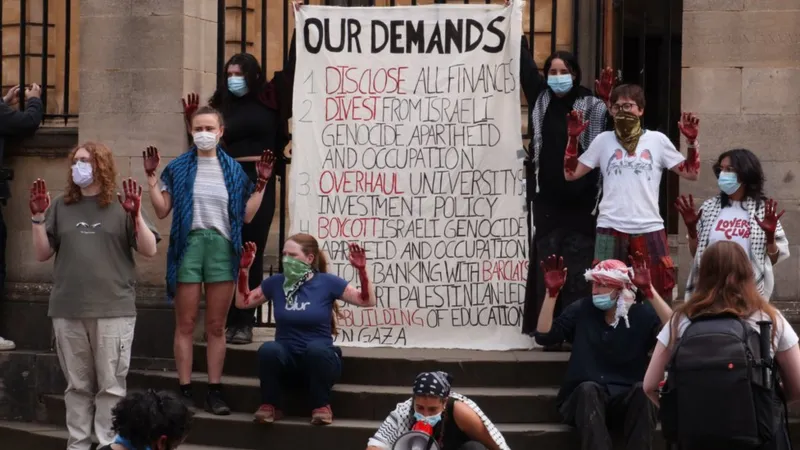 OUR DEMANDS
1 DISCLOSE ALL FINANCES
2 DIVEST FROM ISRAELI
GENOCIDE APARTHEID
AND OCCUPATION
3 OVERHAUL UNIVERSITY
INVESTMENT POLICY
4 BOYCOTT ISRAELI GENOCIDE
APARTHEID AND OCCUPATION
BANKING WITH BARCLAYS
PALESTINIAN-LED
REBUILDING OF EDUCATION
IN GAZA
blur
LOVERS
CLUB